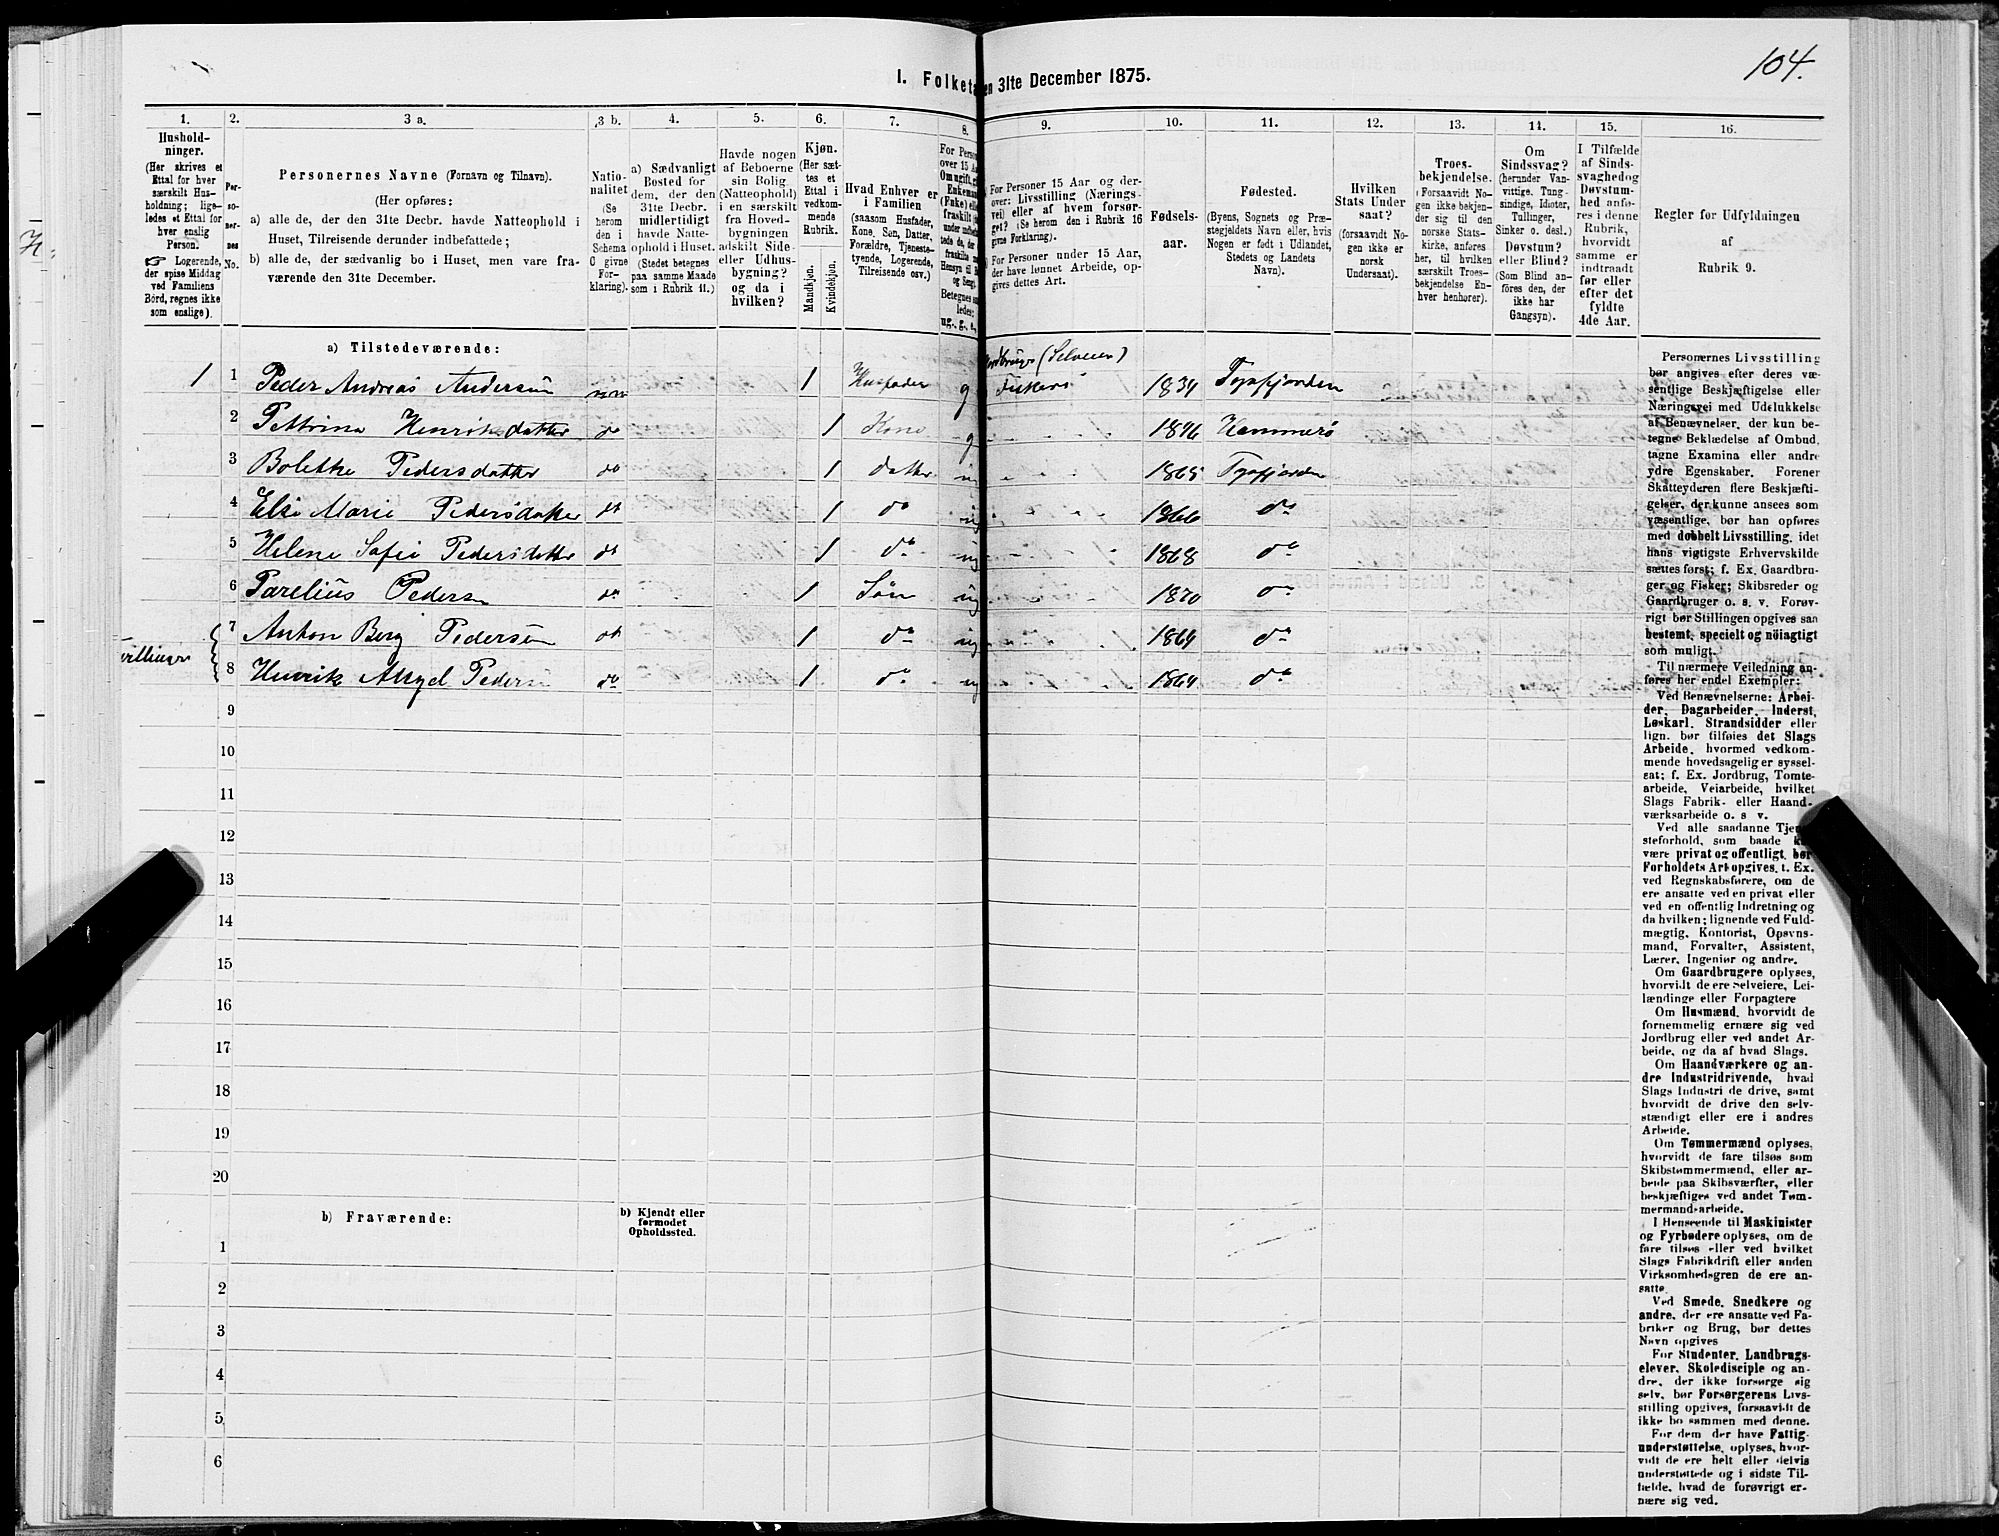 104.
I. Folketa en 31te December 1875.
1. 2. 3 a. 3 b. 4. 5. 6. 7. 8. 9. 10. 11. 12. 13. 14. 15. 16.
Hushold-
ninger.
(Her skrives et
Ettal for hver
særskilt Hus-
holdning; lige-
ledes et Ettal for
hver enslig
Person.
☞ Logerende,
der spise Middag
ved Familiens
Bord, regnes ikke
som enslige).
Per-
so-
ner-
nes
No.
Personernes Navne (Fornavn og Tilnavn).
(Her opføres:
a) alle de, der den 31te Decbr. havde Natteophold i
Huset, Tilreisende derunder indbefattede;
b) alle de, der sædvanlig bo i Huset, men vare fra-
værende den 31te December.
Natio-
nalitet
(Se
herom
den i
Schema
C givne
For-
klaring).
a) Sædvanligt
Bosted for
dem, der den
31te Decbr.
midlertidigt
havde Natte-
ophold i Huset.
(Stedet betegnes
paa samme Maade
som i Rubrik 11.)
Havde nogen
af Beboerne
sin Bolig
(Natteophold)
i en særskilt
fra Hoved-
bygningen
adskilt Side-
eller Udhus-
bygning?
og da i
hvilken?
Kjøn.
(Her sæt-
tes et
Ettal i
vedkom-
mende
Rubrik.
Mandkjøn.
Kvindekjøn.
Hvad Enhver er
i Familien
(saasom Husfader,
Kone, Søn, Datter,
Forældre, Tjeneste-
tyende, Logerende,
Tilreisende osv.)
For Perso
over 15 Aa
Omugift, gi
Enkeman
(Enke) elle
fraskilt
ledes:
ug., g., e.,
For Personer 15 Aar og der-
over: Livsstilling (Nærings-
vei) eller af hvem forsør-
get? (Se herom den i Rubrik 16
givne Forklaring).
For Personer under 15 Aar,
der have lønnet Arbeide, op-
gives dettes Art.
Fødsels-
aar.
Fødested.
(Byens, Sognets og Præ-
stegjeldets Navn eller, hvis
Nogen er født i Udlandet,
Stedets og Landets
Navn).
Hvilken
Stats Under
saat?
(forsaavidt No-
gen ikke er
norsk
Undersaat).
Troes-
bekjendelse.
(Forsaavidt No-
gen ikke bekjen-
der sig til den
norske Stats-
kirke, anføres
her, til hvilken
særskilt Troes-
bekjendelse En-
hver henhører).
Om
Sindssvag?
(herunder Van-
vittige, Tung-
sindige, Idioter,
Tullinger,
Sinker o. desl.)
Døvstum?
eller Blind?
(Som Blind an-
føres den, der
ikke har
Gangsyn).
I Tilfælde
af Sinds-
svaghed og
Døvstum-
hed anfø-
res i denne
Rubrik,
hvorvidt
samme er
indtraadt
før eller
efter det
fyldte
4de Aar.
Regler for Udfyldningen
af
Rubrik 9.
a) Tilstedeværende:
(Selveier)
1 1 Peder Andreas Andersen nn 1 Husfader g Fisker 1834 Tysfjorden
2 Pettrina Henriksdatter do 1 Kone g 1836 Hammerö
3 Bolette Pedersdatter do 1 datter ug 1865 Tysfjorden
4 Else Marie Pedersdatter do 1 do ug 1866 do
5 Helene Sofie Pedersdatter do 1 do ug 1868 do
6 Parelius Pedersen do 1 Søn ug 1870 do
7 Anton Berg Pedersen do 1 do ug 1864 do
villinger
8 Henrik Pedersen do 1 do ug 1864 do
9
10
11
12
13
14
15
16
17
18
19
20
b) Fraværende:
b) Kjendt eller
formodet
Opholdssted.
1
2
3
4
5
6
Personernes Livsstilling
bør angives efter deres væ-
sentlige Beskjæftigelse eller
Næringsvei med Udelukkelse
af Benævnelser, der kun be-
tegne Beklædelse af Ombud,
tagne Examina eller andre
ydre Egenskaber. Forener
Skatteyderen flere Beskjæfti-
gelser, der kunne ansees som
væsentlige, bør han opføres
med dobbelt Livsstilling, idet
hans vigtigste Erhvervskilde
sættes først; f. Ex. Gaardbru-
ger og Fisker; Skibsreder og
Gaardbruger o. s. v. Forøv-
rigt bør Stillingen opgives saa
bestemt, specielt og nöiagtigt
som muligt.
Til nærmere Veiledning an-
føres her endel Exempler:
Ved Benævnelserne: Arbei-
der, Dagarbeider, Inderst,
Løskarl, Strandsidder eller
lign. bør tilføies det Slags
Arbeide, hvormed vedkom-
mende hovedsagelig er syssel-
sat; f. Ex. Jordbrug, Tomte-
arbeide, Veiarbeide, hvilket
Slags Fabrik- eller Haand-
værksarbeide o. s v.
Ved alle saadanne Tje
steforhold, som baade k
være privat og offentligt, bør
Forholdets Art opgives, t. Ex.
ved Regnskabsførere, om de
ere ansatte ved en privat eller
ved en offentlig Indretning og
da hvilken; lignende ved Fuld-
mægtig, Kontorist, Opsyns-
mand, Forvalter, Assistent,
Lærer, Ingeniør og andre.
Om Gaardbrugere oplyses,
hvorvidt de ere Selveiere, Lei-
lændinge eller Forpagtere
Om Husmænd, hvorvidt de
fornemmelig ernære sig ved
Jordbrug eller ved andet Ar-
beide, og da af hvad Slags.
Om Haandværkere og an-
dre Industridrivende, hvad
Slags Industri de drive, samt
hvorvidt de drive den selv-
stændigt eller ere i andres
Arbeide.
Om Tømmermænd oplyses,
hvorvidt de fare tilsøs som
Skibstømmermænd, eller ar-
beide paa Skibsværfter, eller
beskjæftiges ved andet Tøm-
mermandsarbeide.
I Henseende til Maskinister
og Fyrbødere oplyses, om de
fare tilsøs eller ved hvilket
Slags Fabrikdrift eller anden
Virksomhedsgren de ere an-
satte.
Ved Smede, Snedkere og
andre, der ere ansatte ved Fa-
briker og Brug, bør dettes
Navn opgives
For Studenter, Landbrugs-
elever, Skoledisciple og an-
dre, der ikke forsørge sig
selv, bør Forsørgerens Livs-
stilling opgives, forsaavidt de
ikke bo sammen med denne.
For dem der have Fattig-
understøttelse, oplyses, hvor-
vidt de ere helt eller delvis
understøttede og i sidste Til-
fælde, hvad de forøvrigt er-
nære sig ved.